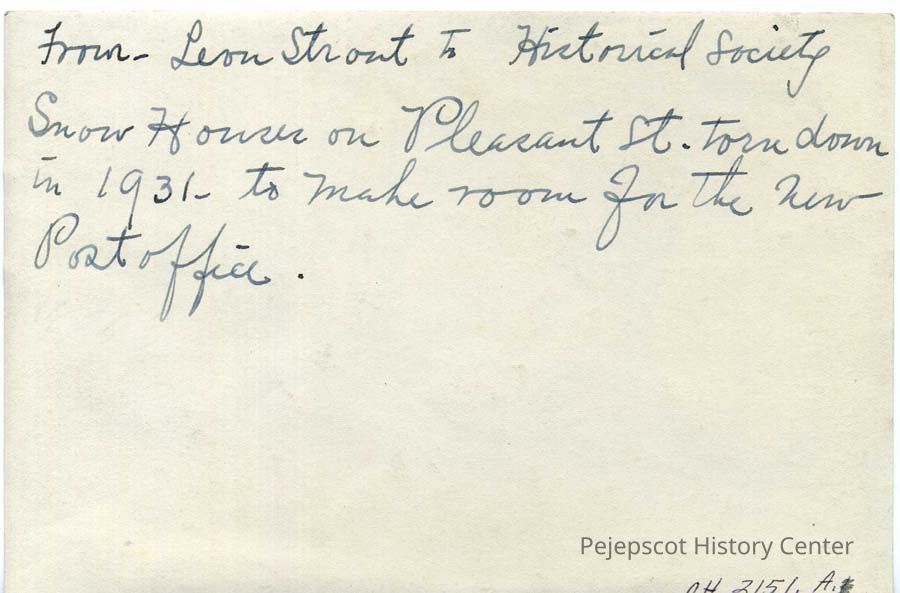 From- Leon Strout to Historical Society
Snow Houses on Pleasant St. torn down
in 1931- to make room for the new
Postoffice.
Pejepscot History Center
OH 2151. A.